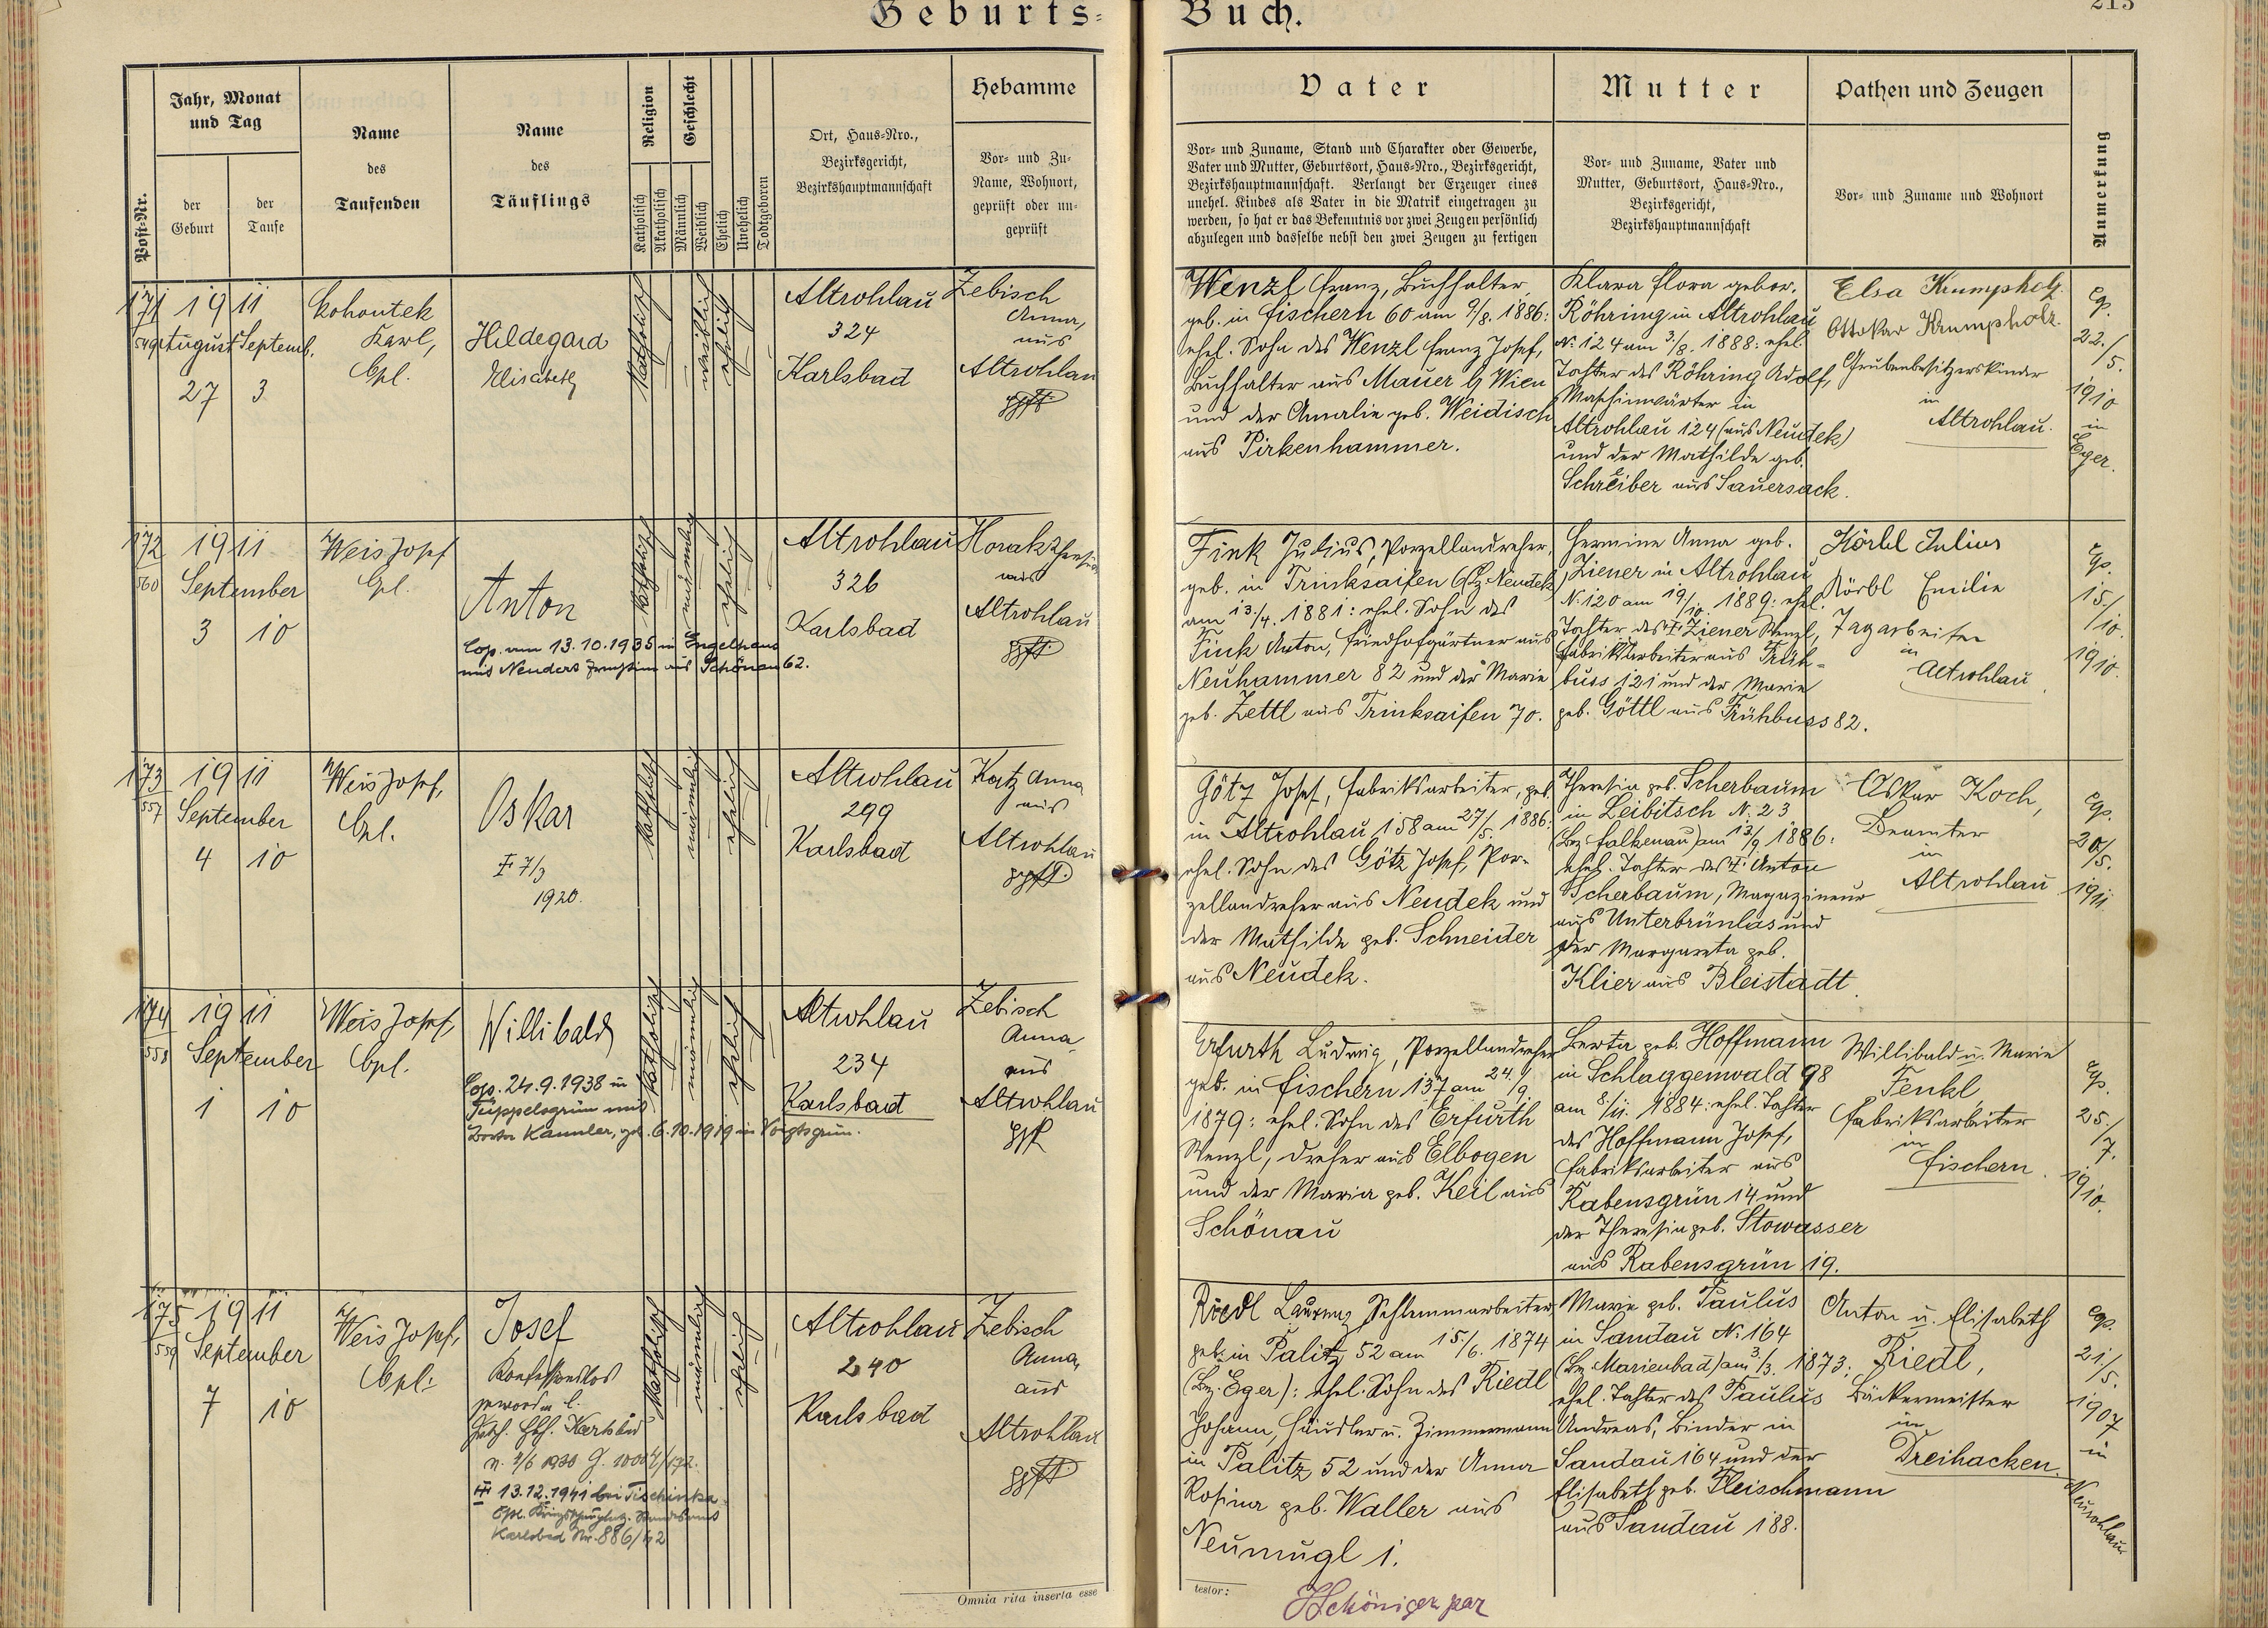 Geburts-
Buch.
213
Post-Nr.
Jahr, Monat
und Tag
der
Geburt
der
Taufe
Name
des
Taufenden
Name
des
Täuflings
Religion
Katholisch
Akatholisch
Geschlecht
Männlich
Weiblich
Ehelich
Unehelich
Todtgeboren
Ort, Haus-Nro.,
Bezirksgericht,
Bezirkshauptmannschaft
Hebamme
Vor- und Zu-
Name, Wohnort,
geprüft oder un-
geprüft
Vater
Vor- und Zuname, Stand und Charakter oder Gewerbe,
Vater und Mutter, Geburtsort, Haus-Nro., Bezirksgericht,
Bezirkshauptmannschaft. Verlangt der Erzeuger eines
unehel. Kindes als Vater in die Matrik eingetragen zu
werden, so hat er das Bekenntnis vor zwei Zeugen persönlich
abzulegen und dasselbe nebst den zwei Zeugen zu fertigen
Mutter
Vor- und Zuname, Vater und
Mutter, Geburtsort, Haus-Nro.,
Bezirksgericht,
Bezirkshauptmannschaft
Pathen und Zeugen
Vor- und Zuname und Wohnort
Anmerkung
171
1911
August
Septemb.
27
3
Kohoutek
Karl,
Cpl.
Hildegard
Elisabeth
katholisch
weiblich
ehelich
Altrohlau
324
Karlsbad
Zebisch
Anna,
aus
Altrohlau
gpft.
Wenzl Franz, Buchhalter
geb. in Fischern 60 am 9/8. 1886:
ehel. Sohn des Wenzl Franz Josef,
Buchhalter aus Mauer b/ Wien
und der Amalie geb. Weidisch
aus Pirkenhammer.
Klara Flora gebor.
Röhring in Altrohlau
N. 124 am 3/8. 1888: ehel.
Tochter des Röhring Adolf,
Maschinwärter in
Altrohlau 124 (aus Neudek)
und der Mathilde geb.
Schreiber aus Sauersack.
Elsa Krumpholz.
Ottokar Krumpholz.
Grubenbesitzerskinder
in
Altrohlau.
cop.
22./
5.
1910
in
Eger.
172
560
1911
September
3
10
Weis Josef
Cpl.
Anton
Cop. am 13.10.1935 in Engelhaus
mit Neudert aus Schönau 62.
katholisch
männlich
ehelich
Altrohlau
326
Karlsbad
Horak Theresia
aus
Altrohlau
gpft.
Fink Julius, Porzellandreher,
geb. in Trinksaifen Bz. Neudek
am 13./4. 1881: ehel. Sohn des
Fink Anton, Friedhofgärtner aus
Neuhammer 82 und der Marie
geb. Zettl aus Trinksaifen 70.
Hermine Anna geb.
Ziener in Altrohlau
N. 120 am 19/10. 1889: ehel.
Tochter des † Ziener Wenzl,
Fabriksarbeiter aus Früh-
buss 121 und der Marie
geb. Göttl aus Frühbuss 82.
Körbl Julius
Körbl Emilie
Tagarbeiter
in
Altrohlau
cop.
15./
10.
1910.
173
557
1911
September
4
10
Weis Josef,
Cpl.
Oskar
† 7/3
1920.
katholisch
männlich
ehelich
Altrohlau
299
Karlsbad
Katz Anna
aus
Altrohlau
gpft.
Götz Josef, Fabriksarbeiter, geb.
in Altrohlau 158 am 27/5. 1886:
ehel. Sohn des Götz Josef, Por-
zellandreher aus Neudek und
der Mathilde geb. Schneider
aus Neudek.
Theresia geb. Scherbaum
in Leibitsch N. 23
(Bez. Falkenau) am 13/9 1886:
ehel. Tochter des † Anton
Scherbaum, Magazineur
aus Unterbrünlas und
der Margareta geb.
Klier aus Bleistadt.
Oskar Koch,
Beamter
in
Altrohlau
cop.
20/
5.
1911
174
558
1911
September
1
10
Weis Josef,
Cpl.
Willibald
Cop. 24.9.1938 in
Tüppelsgrün mit
Kannler, geb. 6.10.1919 in Voigtsgrün.
katholisch
männlich
ehelich
Altrohlau
234
Karlsbad
Zebisch
Anna
aus
Altrohlau
gpft
Erfurth Ludwig, Porzellandreher
geb. in Fischern 137 am 24./9.
1879: ehel. Sohn des Erfurth
Wenzl, Dreher aus Elbogen
und der Maria geb. Keil aus
Schönau
Berta geb. Hoffmann
in Schlaggenwald 98
am 8./11. 1884: ehel. Tochter
des Hoffmann Josef,
Fabriksarbeiter aus
Rabensgrün 14 und
der Theresia geb. Stowasser
aus Rabensgrün 19.
Willibald u. Marie
Fenkl,
Fabriksarbeiter
in
Fischern.
cop.
25./
7.
1910.
175
559
1911
September
7
10
Weis Josef,
Cpl.
Josef
Konfessionslos
geworden l.
Karlsbad
13.12.1941 bei Tischinka
Karlsbad Nr. 886/42
katholisch
männlich
ehelich
Altrohlau
240
Karlsbad
Zebisch
Anna,
aus
Altrohlau
gpft.
Riedl Laurenz Schlammarbeiter
geb. in Palitz 52 am 15./6. 1874
(Bez. Eger): ehel. Sohn des Riedl
Johann, Häusler u. Zimmermann
in Palitz 52 und der Anna
Rosina geb. Waller aus
Neumugl 1.
Marie geb. Paulus
in Sandau N. 164
(Bez. Marienbad) am 3/3. 1873:
ehel. Tochter des Paulus
Andreas, Binder in
Sandau 164 und der
Elisabeth geb. Fleischmann
aus Sandau 188.
Anton u. Elisabeth
Riedl,
Bäckermeister
in
Dreihacken.
cop.
21./
5.
1907
in
Neurohlau
Omnia rita inserta esse
testor:
Schöniger par